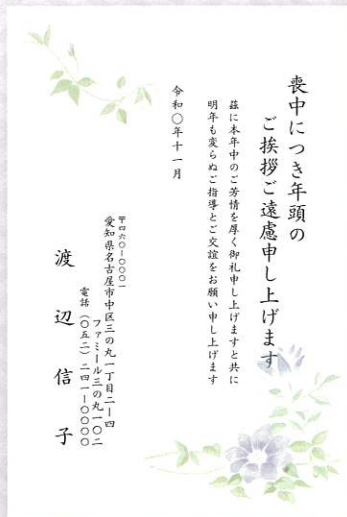 喪中につき年頭の
ご挨拶ご遠慮申し上げます
茲に本年中のご芳情を厚く御礼申し上げますと共に
明年も変らぬご指導とご交誼をお願い申し上げます
令和〇年十一月
〒四六〇-〇〇〇一
愛知県名古屋市中区三の丸一丁目二-四
ファミール三の丸一〇二
電話（〇五二）二四一-〇〇〇〇
渡辺信子